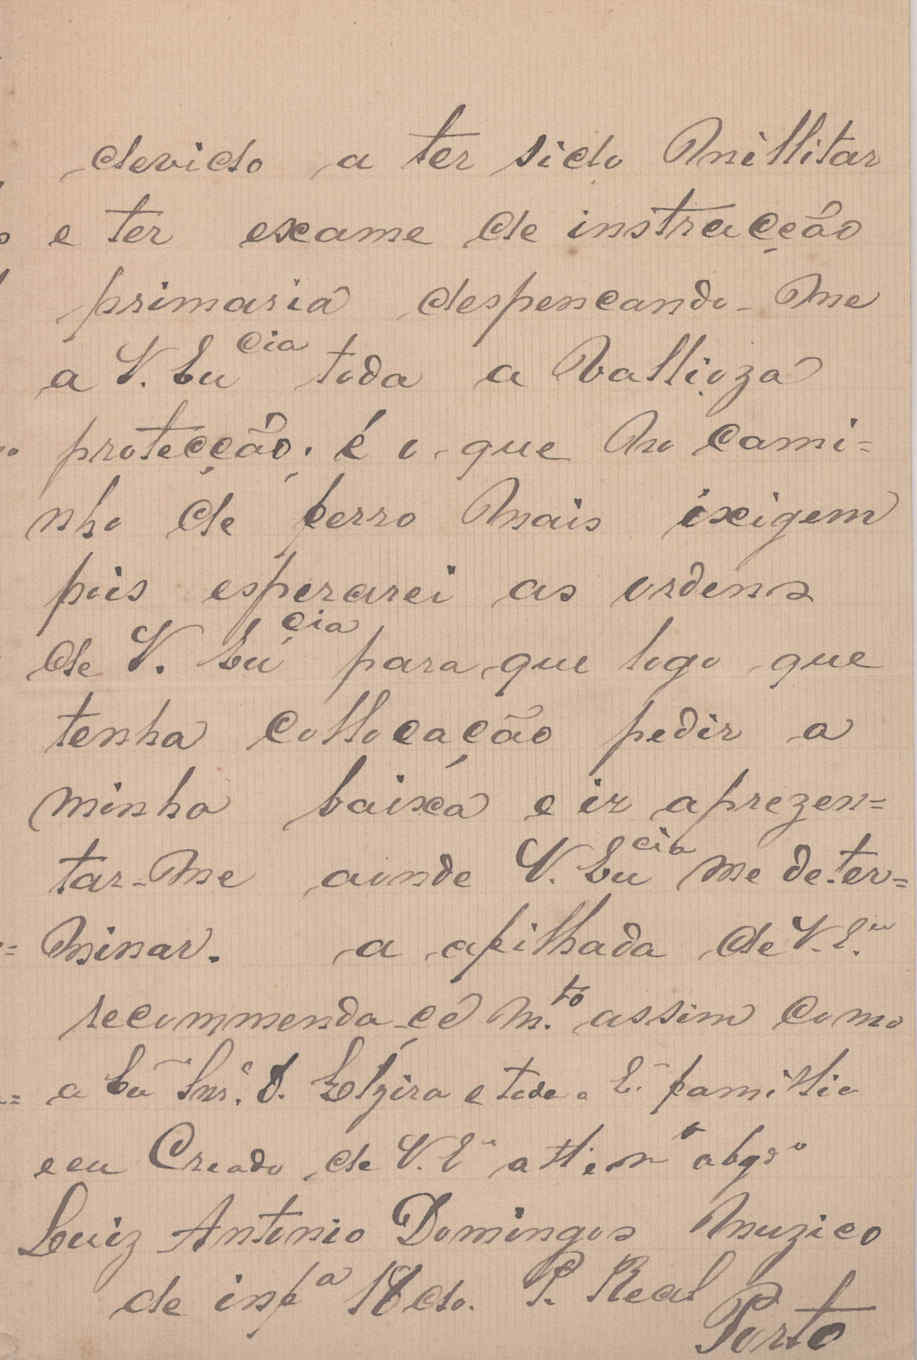 devido a ter sido Millitar
e ter exame de instrucção
primaria despençando-me
a V. Eu cia toda a Vallioza
protecção. é o que no cami=
nho de ferro mais ixigem
pois esperarei as ordens
de V. Eu cia para que logo que
tenha collocação pedir a
minha baixa e ir aprezen=
tar-me aonde V. Eu cia me deter=
minar. a afilhada de V. E.
recommenda-ce m.to assim como
a Snr.ª D. Elzira e toda a E. familia
e eu Creado de V. E abgdo
Luiz Antonio Domingos Muzico
de infª 18 do. P. Real
Porto